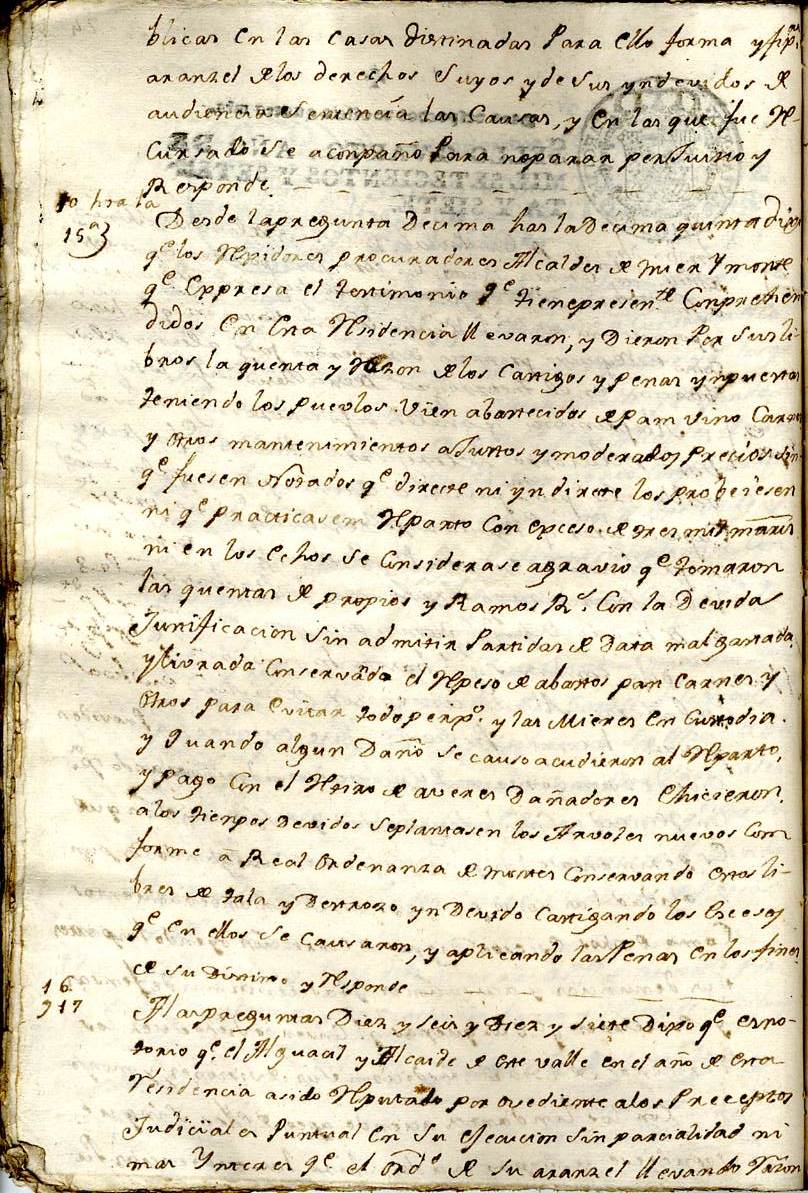 blicas En las Casas distinadas Para ello forma y fixo
aranzel de los derechos Suyos y de Sus yndevidos de
audiencia Sentencia las Causas, y En las que fue Re-
Cursado Se aconpaño Para no parar perJuicio y
Responde
10 hasta
15ª
Desde la pregunta Decima hasta Decima quinta dixo
qᵉ los Rexidores procuradores Alcaldes de mier y monte
qᵉ Expresa el testimonio qᵉ tiene presenᵗᵉ Conprehen
didos En Esta Residencia llevaron, y Dieron Por Sus li-
bros la quenta y Razon de los Castigos y penas ynpuestas
teniendo los pueblos Vien abastecidos de pam vino Carnes
y otros mantenimientos a Justos y moderados Precios sin
qᵉ fuesen Notados qᵉ directe ni yndirecte los probeiesen
ni qᵉ practicasem Reparto Con exceso de tres mil maravˢ
ni en los Echos Se Considerase agravio qᵉ tomaron
las quentas de propios y Ramos Rˢ. Con la Devida
Justificacion Sin admitir Partidas de Data mal gastada,
y livrada Conservada el Repeso de abastos pan Carnes y
otros para Evitar todo perxᵒ. y las Mieses En Custodia.
y quando algun Daño Se causo acudieron al Reparto,
y pago Con el Retiro de averes Dañadores E hicieron,
a los tienpos Devidos Se plantasen los Arvoles nuevos Com
forme a Real Ordenanza de montes Conservando estos li-
bres de tala y Destrozo yn Devido Castigando los Excesos
qᵉ En ellos Se Causaron, y aplicando las Penas En los fines
de su Distino y Responde
16
y 17
A las preguntas Diez y seis y Diez y siete Dixo qᵉ es no-
torio qᵉ. el Alguacil y Alcaide de este valle en el año de esta
Residencia a sido Reputado por ovediente a los Preceptos
Judiciales Puntual En Su Ejecucion Sin parcialidad ni
mas Ynteres qᵉ el Ordᵒ de su aranzel llevando Razon